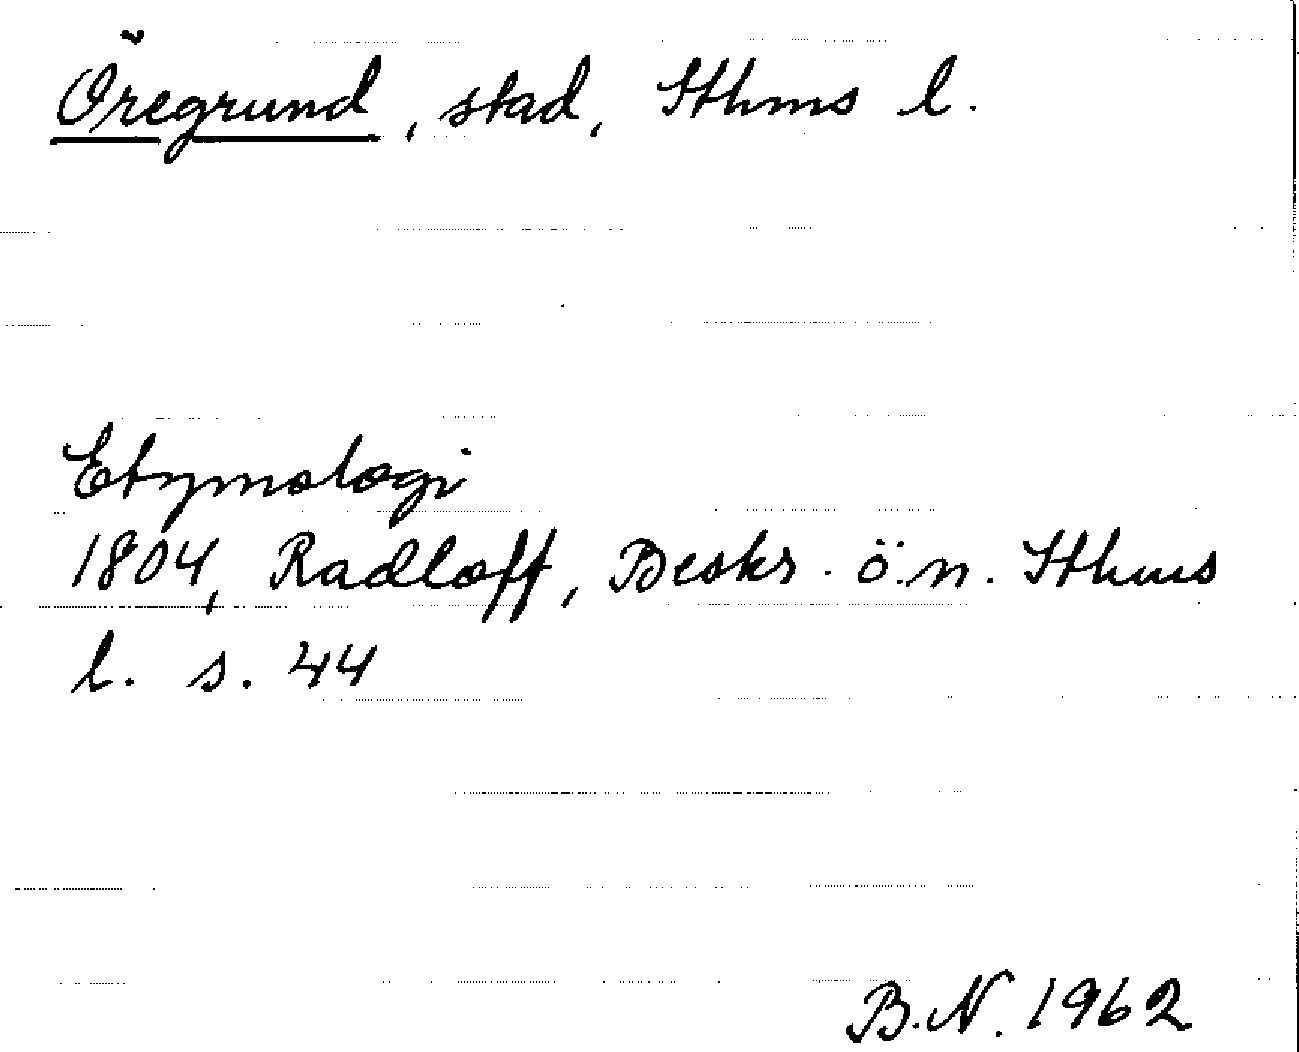 Öregrund, stad, Sthms l.
Etymologi
1804, Radloff, Beskr. ö. n. Sthms
l. s. 44
B.N. 1962